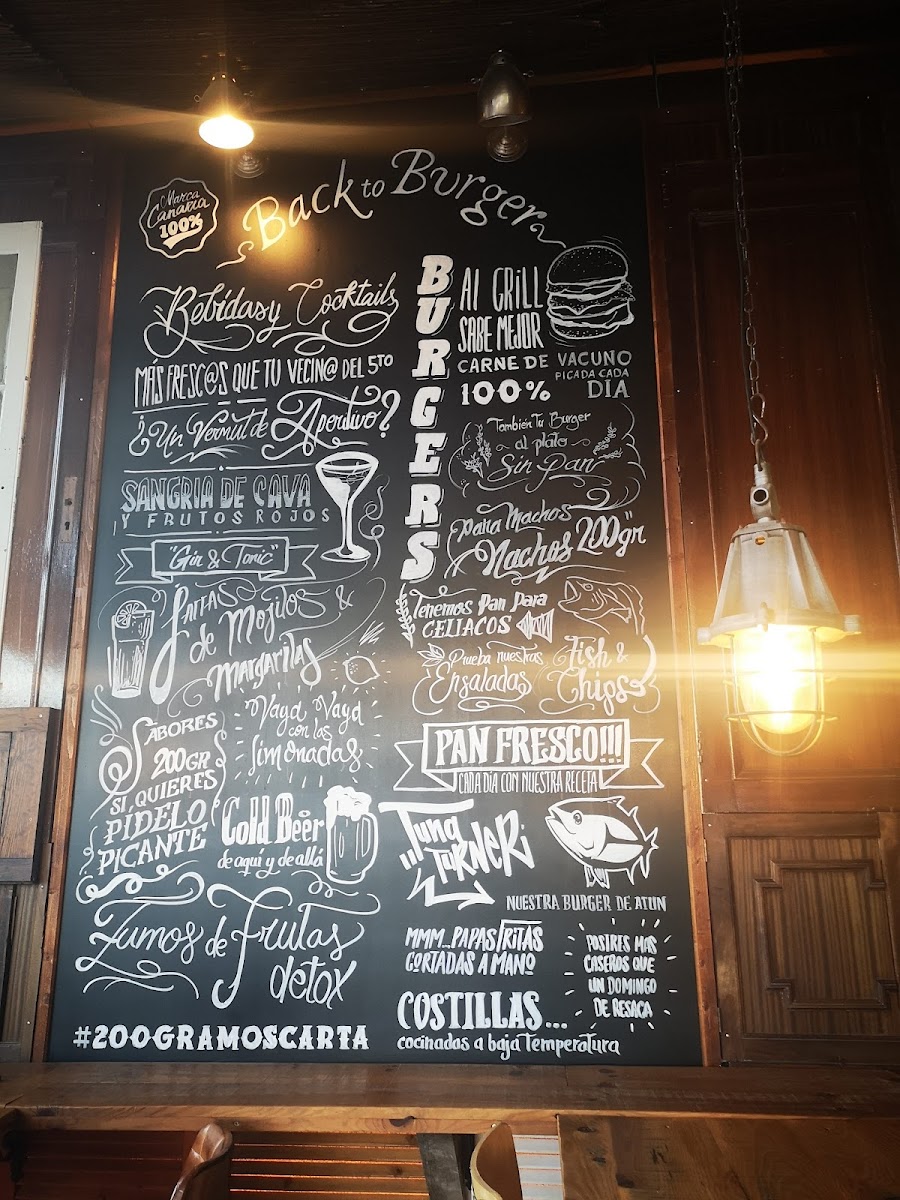 Marca
Canaria
100%
Back to Burger
Bebidas y Cocktails
MÁS FRESC@S QUE TU VECIN@ DEL 5TO
¿Un Vermut de Aperitivo?
SANGRIA DE CAVA
Y FRUTOS ROJOS
"Gin & Tonic"
Jarras
de Mojitos &
Margaritas
Vaya Vaya
con las
limonadas
SABORES
200GR
SI QUIERES
PÍDELO
PICANTE
Cold Beer
de aquí y de allá
Zumos de Frutas
detox
#200GRAMOSCARTA
BURGERS
Al GRILL
SABE MEJOR
CARNE DE VACUNO
100% PICADA CADA
DIA
También Tu Burger
al plato
Sin Pan
Para Machos
Nachos 200gr"
Tenemos Pan Para
CELIACOS
Prueba nuestras
Ensaladas
Fish &
Chips
PAN FRESCO!!!
CADA DÍA CON NUESTRA RECETA
Tuna
TURNER
NUESTRA BURGER DE ATUN
MMM...PAPAS FRITAS
CORTADAS A MANO
POSTRES MAS
CASEROS QUE
UN DOMINGO
DE RESACA
COSTILLAS...
cocinadas a baja Temperatura